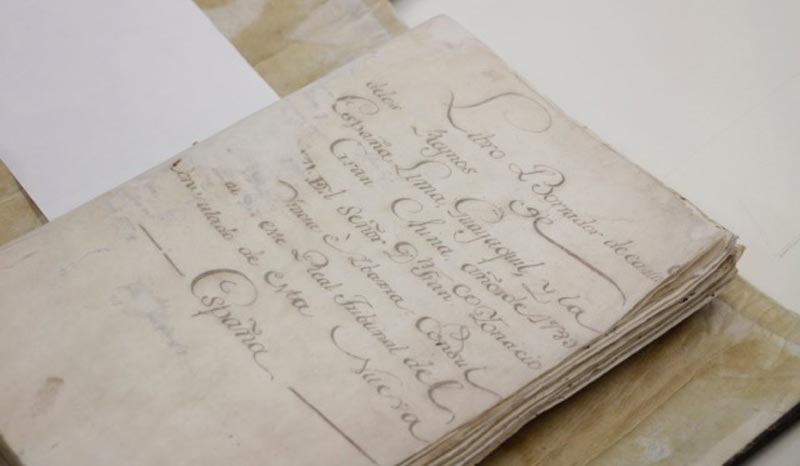 Libro Borrador de
delos Ramos de
España Lima, Guayaquil y la
Gran China, año de 1789
El Señor Dn Fran co Ygnacio
Consul
en este Real Tribunal del
Consulado de esta Nueva
España